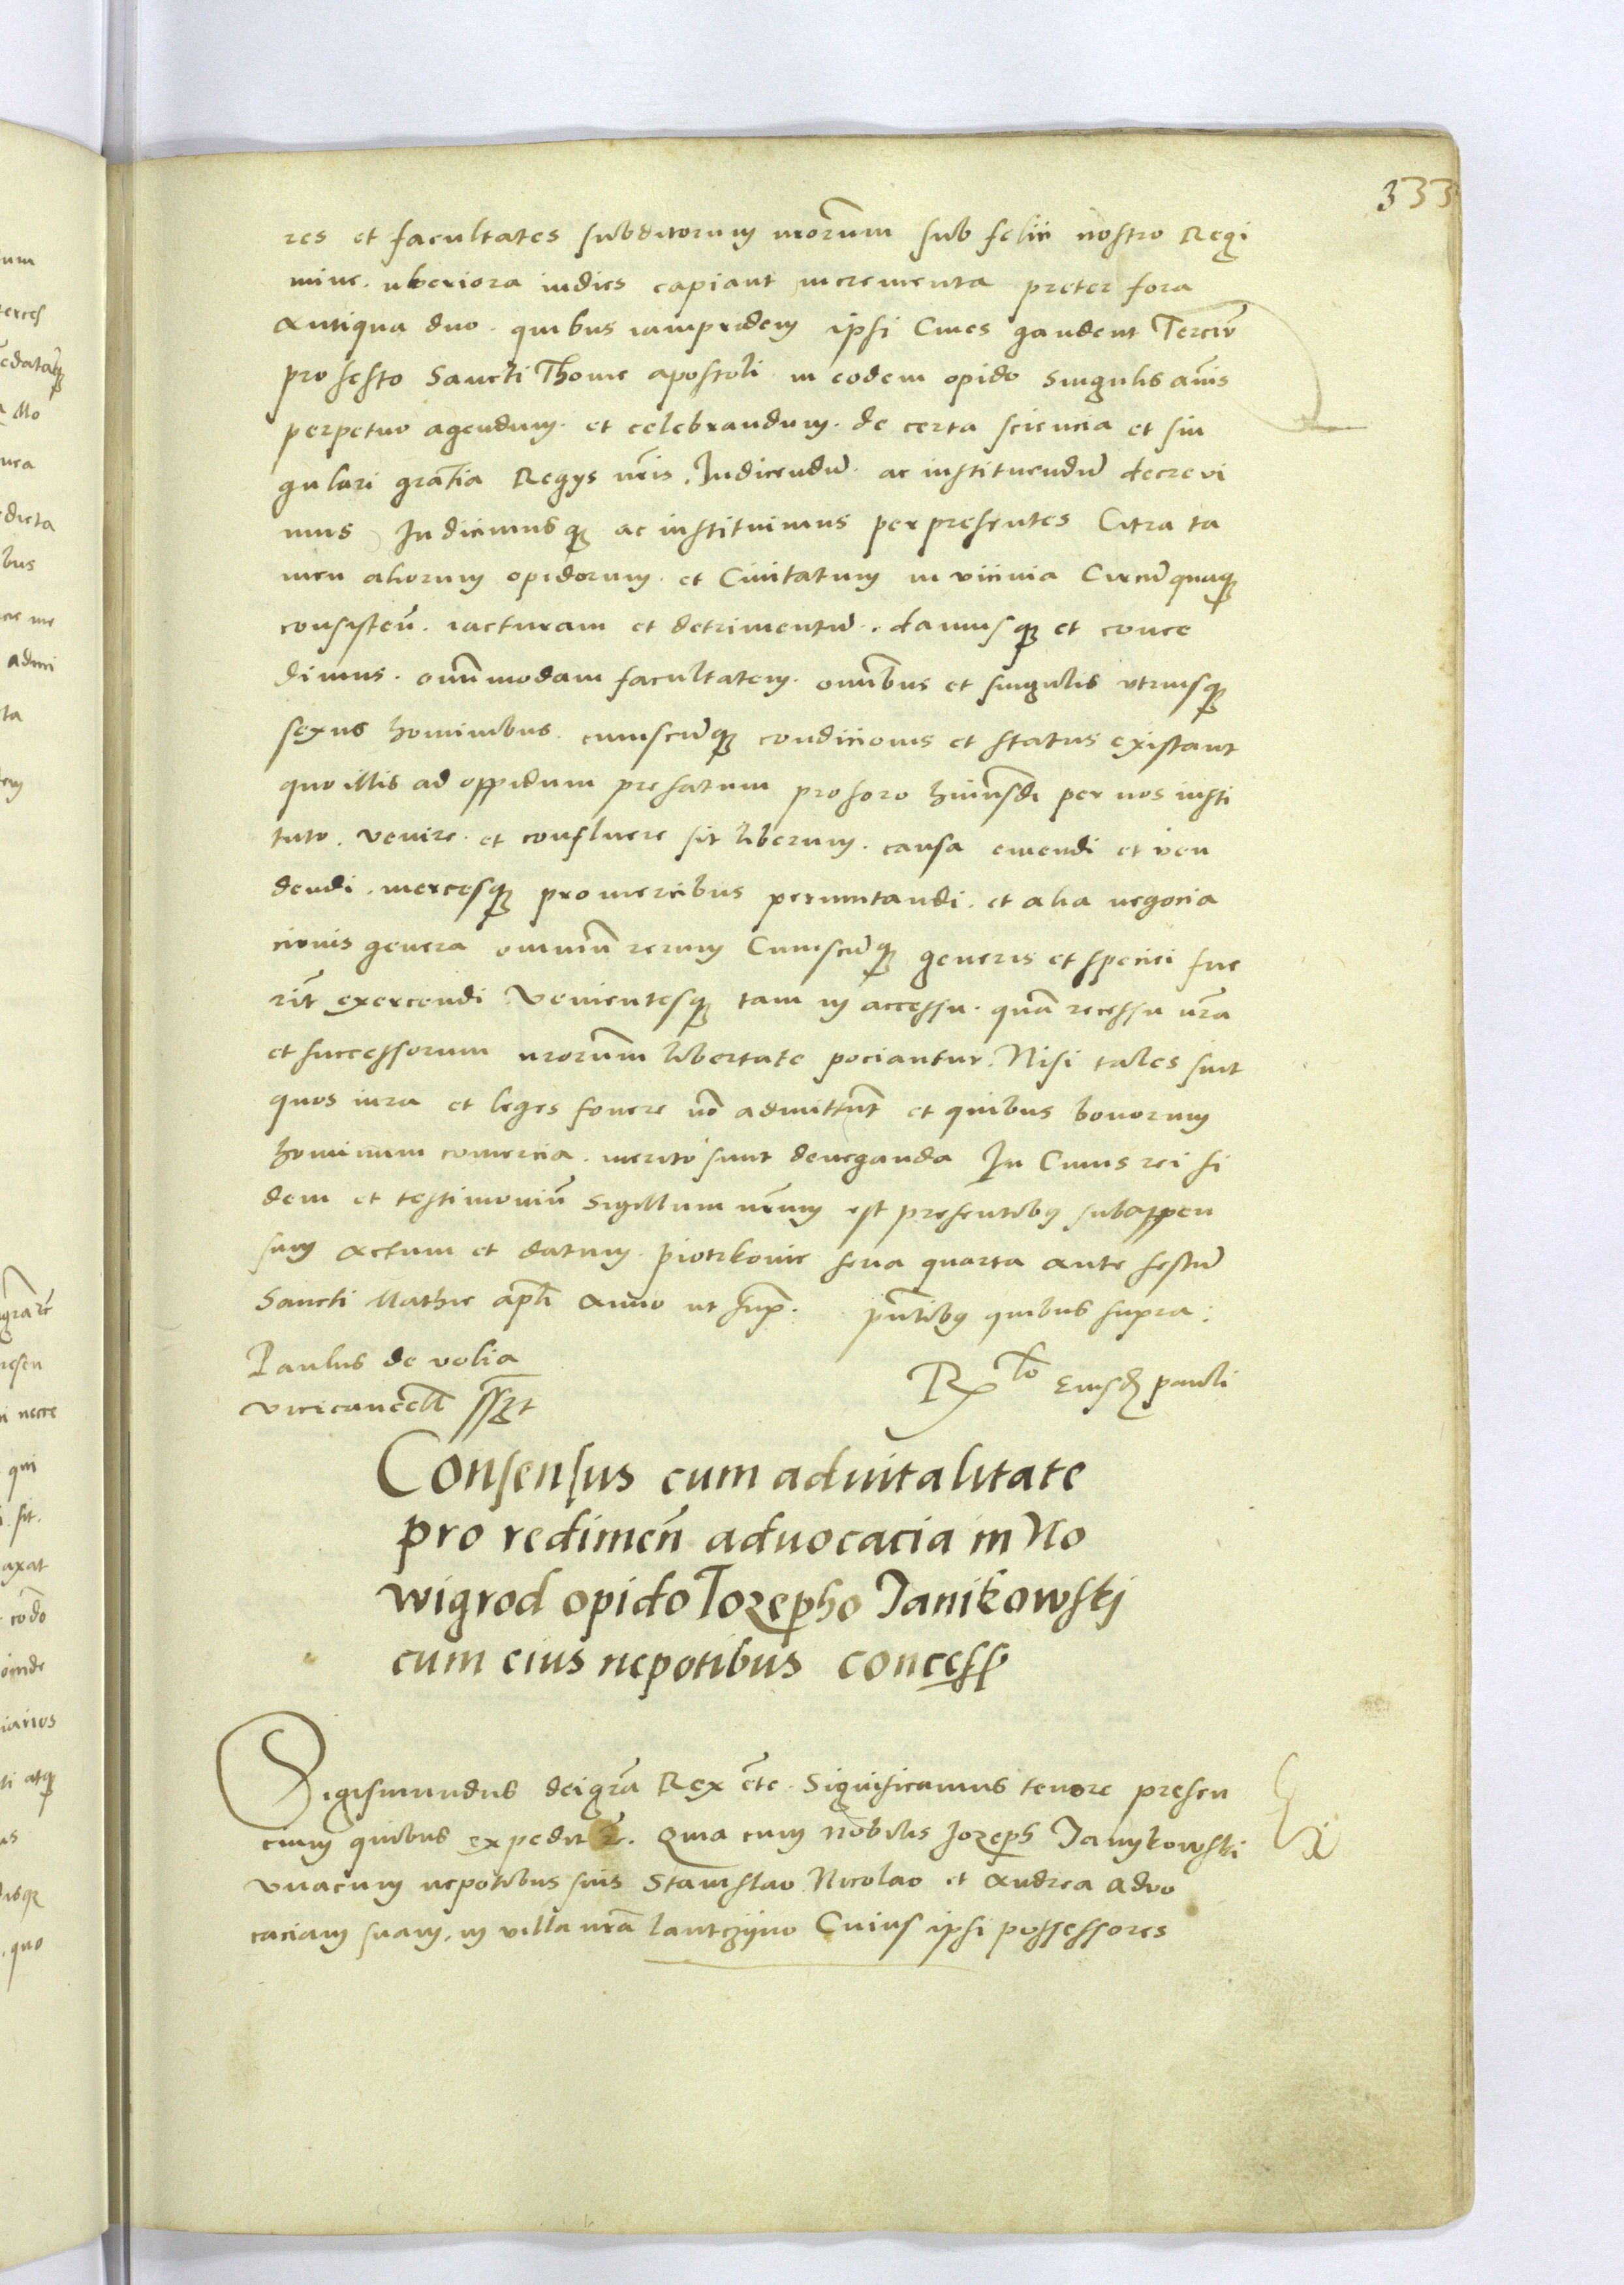 333
res et facultates subditorum nrorum sub felici nostro Regi
mine. uberiora indies capiant incrementa preter fora
Antiqua duo. quibus iampridem ipsi Cives gaudent Terciu
pro festo Sancti Thome apostoli in eodem opido Singulis anis
perpetuo agendum. et celebrandum. de certa sciencia et sin
gulari gratia Regys nris. Indicendu. ac instituendu decrevi
mus Indicimusq ac instituimus per presentes Citra ta
men aliorum opidorum. et Civitatum in vicinia Circumquaq
consisten. iacturam et detrimentu. damusq et conce
dimus. omnimodam facultatem. omibus et singulis utriusq
sexus hominibus. cuiuscumq condicionis et status existant
quo illis ad oppidum prefatum pro foro huiusdi per nos insti
tuto. venire. et confluere sit liberum. causa emendi et ven
dendi. mercesq pro mercibus permutandi. et alia negocia
cionis genera omnium rerum Cuiuscumq generis et speciei fue
rit exercendi. Venientesq tam in accessu. quam recessu nra
et successorum nrorum libertate pociantur. Nisi tales sint
quos iura et leges fovere no admittunt et quibus bonorum
hominum comercia. merito sunt deneganda In Cuius rei fi
dem et testimoniu Sigillum nrum est presentibus subappen
sum Actum et datum. piotrkovie feria quarta ante festu
Sancti Mathie apli Anno ut sup. pntibus quibus supra:
Paulus de volia
vicecancell sszt
Rlo Eiusd pauli
Consensus cum advitalitate
pro redimen advocacia in No
wigrod opido Iozepho Ianikowski
cum eius nepotibus concess
Sigismundus dei gra Rex etc. Significamus tenore presen
cium quibus expedit &c. Quia cum nobilis Iozeph Ianykowski
vnacum nepotibus suis Stanislao. Nicolao et Andrea advo
caciam suam. in villa nra lantczyno Cuius ipsi possessores